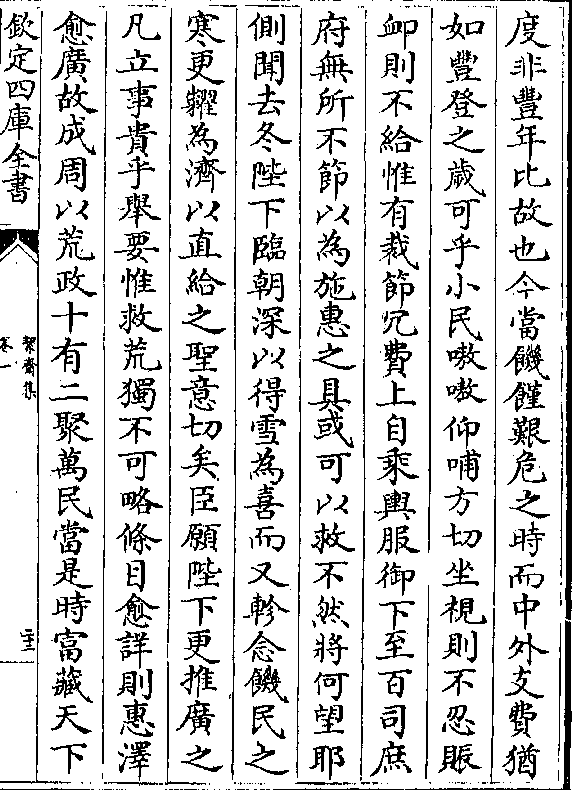 度非豐年比故也今當饑饉艱危之時而中外支費猶
如豐登之歲可乎小民嗷嗷仰哺方切坐視則不忍賑
卹則不給惟有裁節冗費上自乘輿服御下至百司庶
府無所不節以為施惠之具或可以救不然將何望耶
側聞去冬陛下臨朝深以得雪為喜而又軫念饑民之
寒更糴為濟以直給之聖意切矣臣願陛下更推廣之
凡立事貴乎舉要惟救荒獨不可略條目愈詳則惠澤
愈廣故成周以荒政十有二聚萬民當是時富藏天下
欽定四庫全書
絜齋集
卷一
二十三